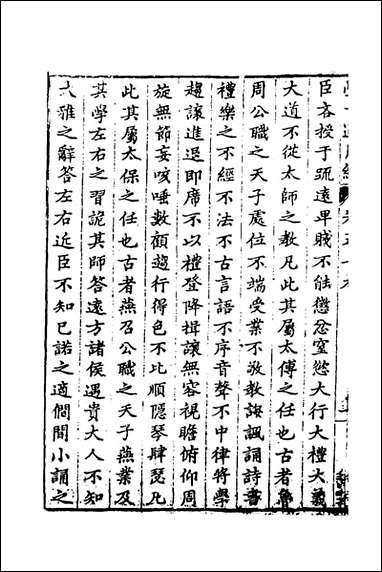 臣吝授于疏遠卑賤不能懲忿窒慾大行大禮大義
大道不從太師之教凡此其屬太傅之任也古者魯
周公職之天子處位不端受業不敬教誨諷誦詩書
禮樂之不經不法不古言語不序音聲不中律將學
趨讓進退即席不以禮登降揖讓無容視瞻俯仰周
旋無節妄咳唾數顧趨行得色不比順隱琴肆瑟凡
此其屬太保之任也古者燕召公職之天子燕業及
其學左右之習詭其師答遠方諸侯遇貴大人不知
大雅之辭答左右近臣不知已諾之適僩問小誦之